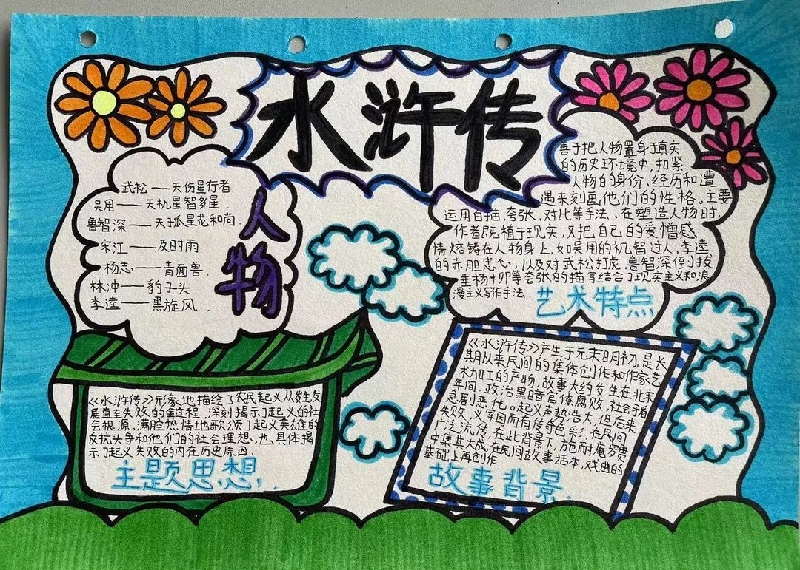 水浒传
人物
武松——天伤星行者
吴用——天机星智多星
鲁智深——天孤星花和尚
宋江——及时雨
杨志——青面兽
林冲——豹子头
李逵——黑旋风
善于把人物置身于真实
的历史环境中,扣紧
人物的身份、经历和遭
遇来刻画他们的性格,主要
运用白描、夸张、对比等手法,在塑造人物时,
作者既植于现实,又把自己的爱憎感
情熔铸在人物身上,如吴用的机智过人,李逵
的赤胆忠心,以及对武松打虎、鲁智深倒拔
垂杨柳等夸张的描写结合了现实主义和浪
漫主义写作手法
艺术特点
《水浒传》形象地描绘了农民起义从发生发
展直至失败的全过程,深刻揭示了起义的社
会根源,满腔热情地歌颂了起义英雄的
反抗斗争和他们的社会理想,也具体揭
示了起义失败的内在历史原因。
主题思想
《水浒传》产生于元末明初,是长
期以来民间的集体创作和作家艺
术加工的产物,故事大约发生在北宋
年间,政治黑暗官体腐败,社会矛盾
急剧恶化。起义声势浩大,但后来
失败,义军因而有传奇色彩,在民间
广泛流传,在此背景下,施耐庵
中集大成,在民间故事话本,戏曲的
基础上再创作
故事背景